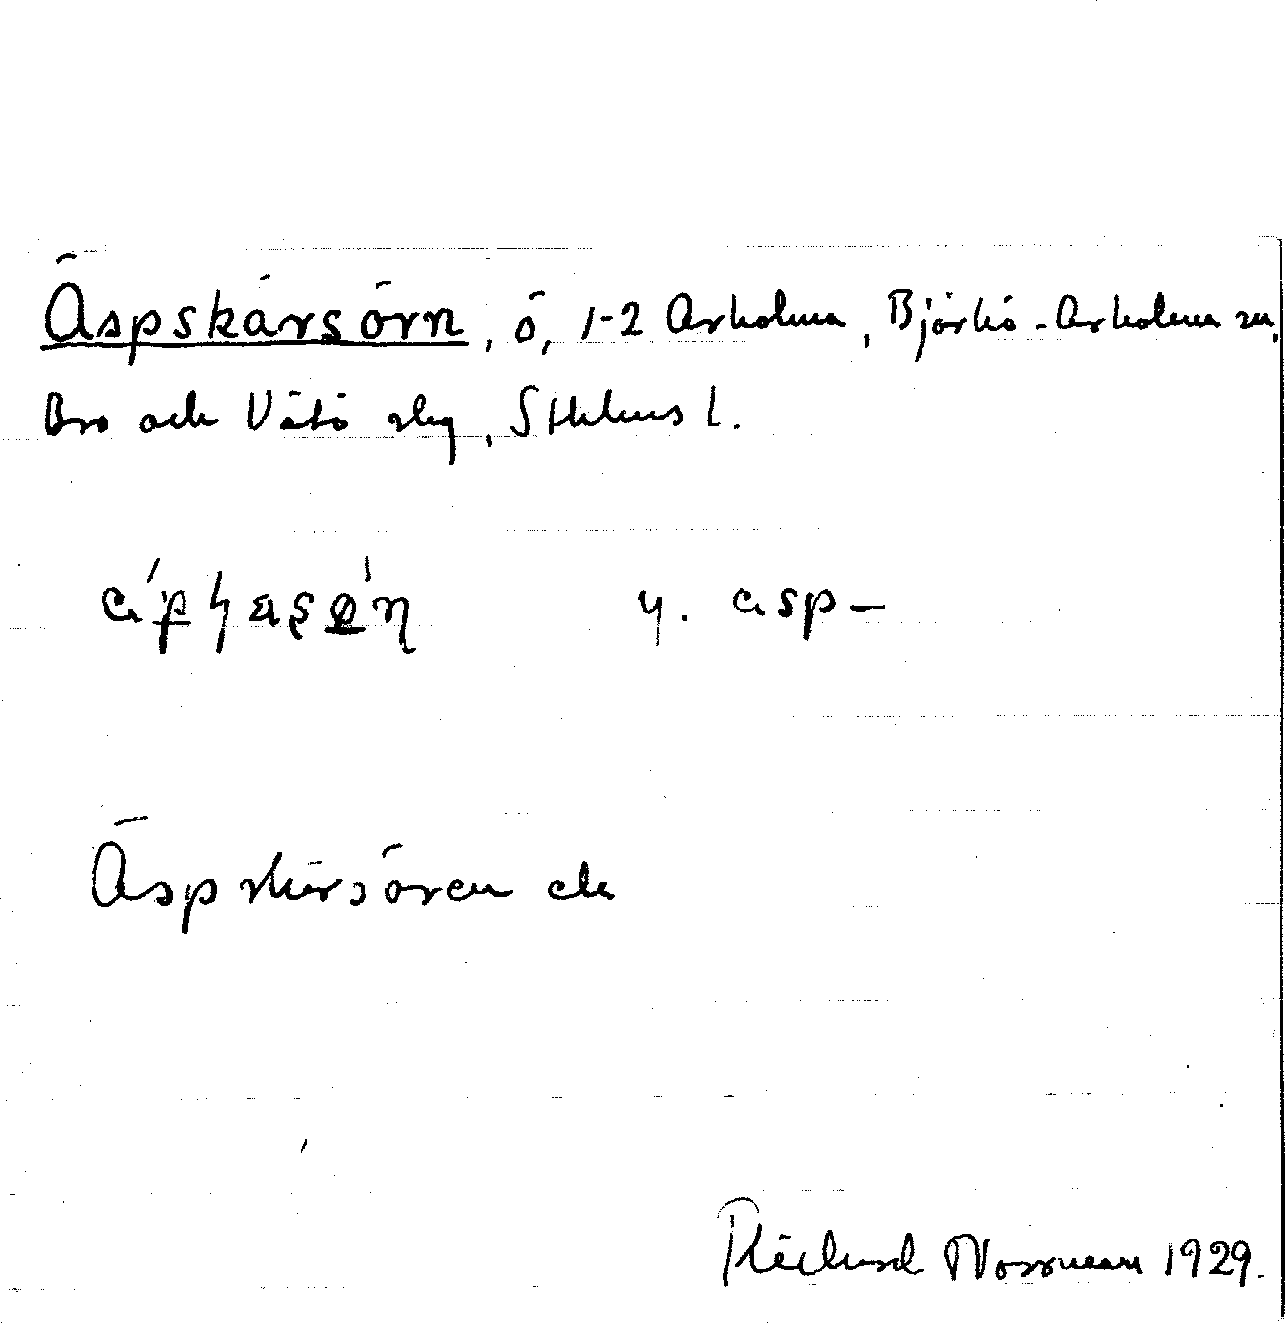 Äspskärsörn, ö, 1-2 Arholma, Björkö-Arholma sn,
Bro och Vätö slg, Sthlms l.
y. asp-
Äspskärsören ek
Rickard Norrman 1929.